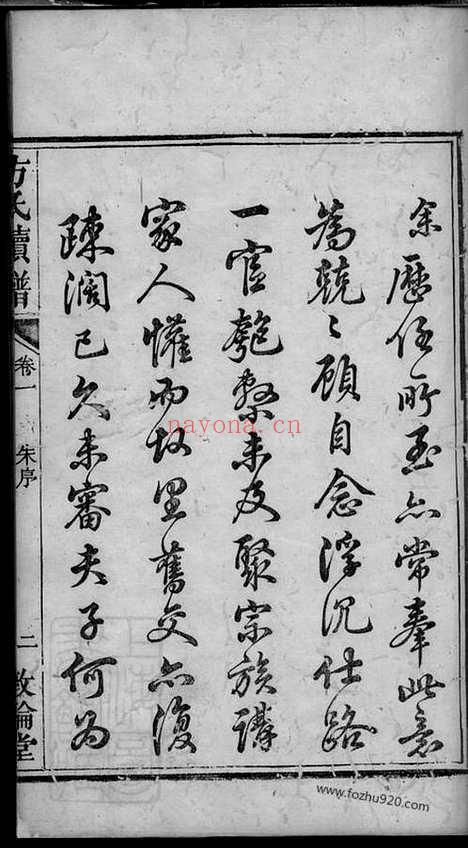 余歷任所至亦常奉此意
為兢兢顧自念浮沉仕路
一官匏繫未及聚宗族講
家人懽而故里舊交亦復
疎濶已久未審夫子何為
方氏續譜 卷一 朱序 二 敦倫堂
nayona.cn
www.fozhu920.com